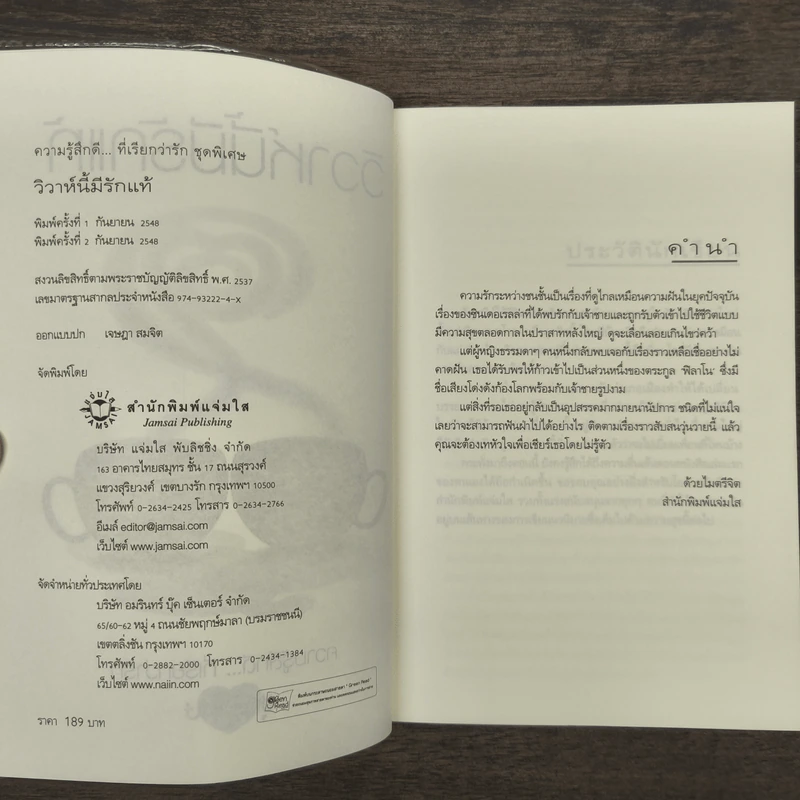 ความรู้สึกดี... ที่เรียกว่ารัก ชุดพิเศษ
วิวาห์นี้มีรักแท้
พิมพ์ครั้งที่ 1 กันยายน 2548
พิมพ์ครั้งที่ 2 กันยายน 2548
สงวนลิขสิทธิ์ตามพระราชบัญญัติลิขสิทธิ์ พ.ศ. 2537
เลขมาตรฐานสากลประจำหนังสือ 974-93222-4-X
ออกแบบปก เจษฎา สมจิต
จัดพิมพ์โดย
แจ่มใส
JAMSAI
สำนักพิมพ์แจ่มใส
Jamsai Publishing
บริษัท แจ่มใส พับลิชชิ่ง จำกัด
163 อาคารไทยสมุทร ชั้น 17 ถนนสุรวงศ์
แขวงสุริยวงศ์ เขตบางรัก กรุงเทพฯ 10500
โทรศัพท์ 0-2634-2425 โทรสาร 0-2634-2766
อีเมล์ editor@jamsai.com
เว็บไซต์ www.jamsai.com
จัดจำหน่ายทั่วประเทศโดย
บริษัท อมรินทร์ บุ๊ค เซ็นเตอร์ จำกัด
65/60-62 หมู่ 4 ถนนชัยพฤกษ์มาลา (บรมราชชนนี)
เขตตลิ่งชัน กรุงเทพฯ 10170
โทรศัพท์ 0-2882-2000 โทรสาร 0-2434-1384
เว็บไซต์ www.naiin.com
ราคา 189 บาท
คำนำ
ความรักระหว่างชนชั้นเป็นเรื่องที่ดูไกลเหมือนความฝันในยุคปัจจุบัน
เรื่องของซินเดอเรลล่าที่ได้พบรักกับเจ้าชายและถูกรับตัวเข้าไปใช้ชีวิตแบบ
มีความสุขตลอดกาลในปราสาทหลังใหญ่ ดูจะเลื่อนลอยเกินไขว่คว้า
แต่ผู้หญิงธรรมดาๆ คนหนึ่งกลับพบเจอกับเรื่องราวเหลือเชื่ออย่างไม่
คาดฝัน เธอได้รับพรให้ก้าวเข้าไปเป็นส่วนหนึ่งของตระกูล 'ฟิลาโน' ซึ่งมี
ชื่อเสียงโด่งดังก้องโลกพร้อมกับเจ้าชายรูปงาม
แต่สิ่งที่รอเธออยู่กลับเป็นอุปสรรคมากมายนานัปการ ชนิดที่ไม่แน่ใจ
เลยว่าจะสามารถฟันฝ่าไปได้อย่างไร ติดตามเรื่องราวสับสนวุ่นวายนี้ แล้ว
คุณจะต้องเทหัวใจเพื่อเชียร์เธอโดยไม่รู้ตัว
ด้วยไมตรีจิต
สำนักพิมพ์แจ่มใส